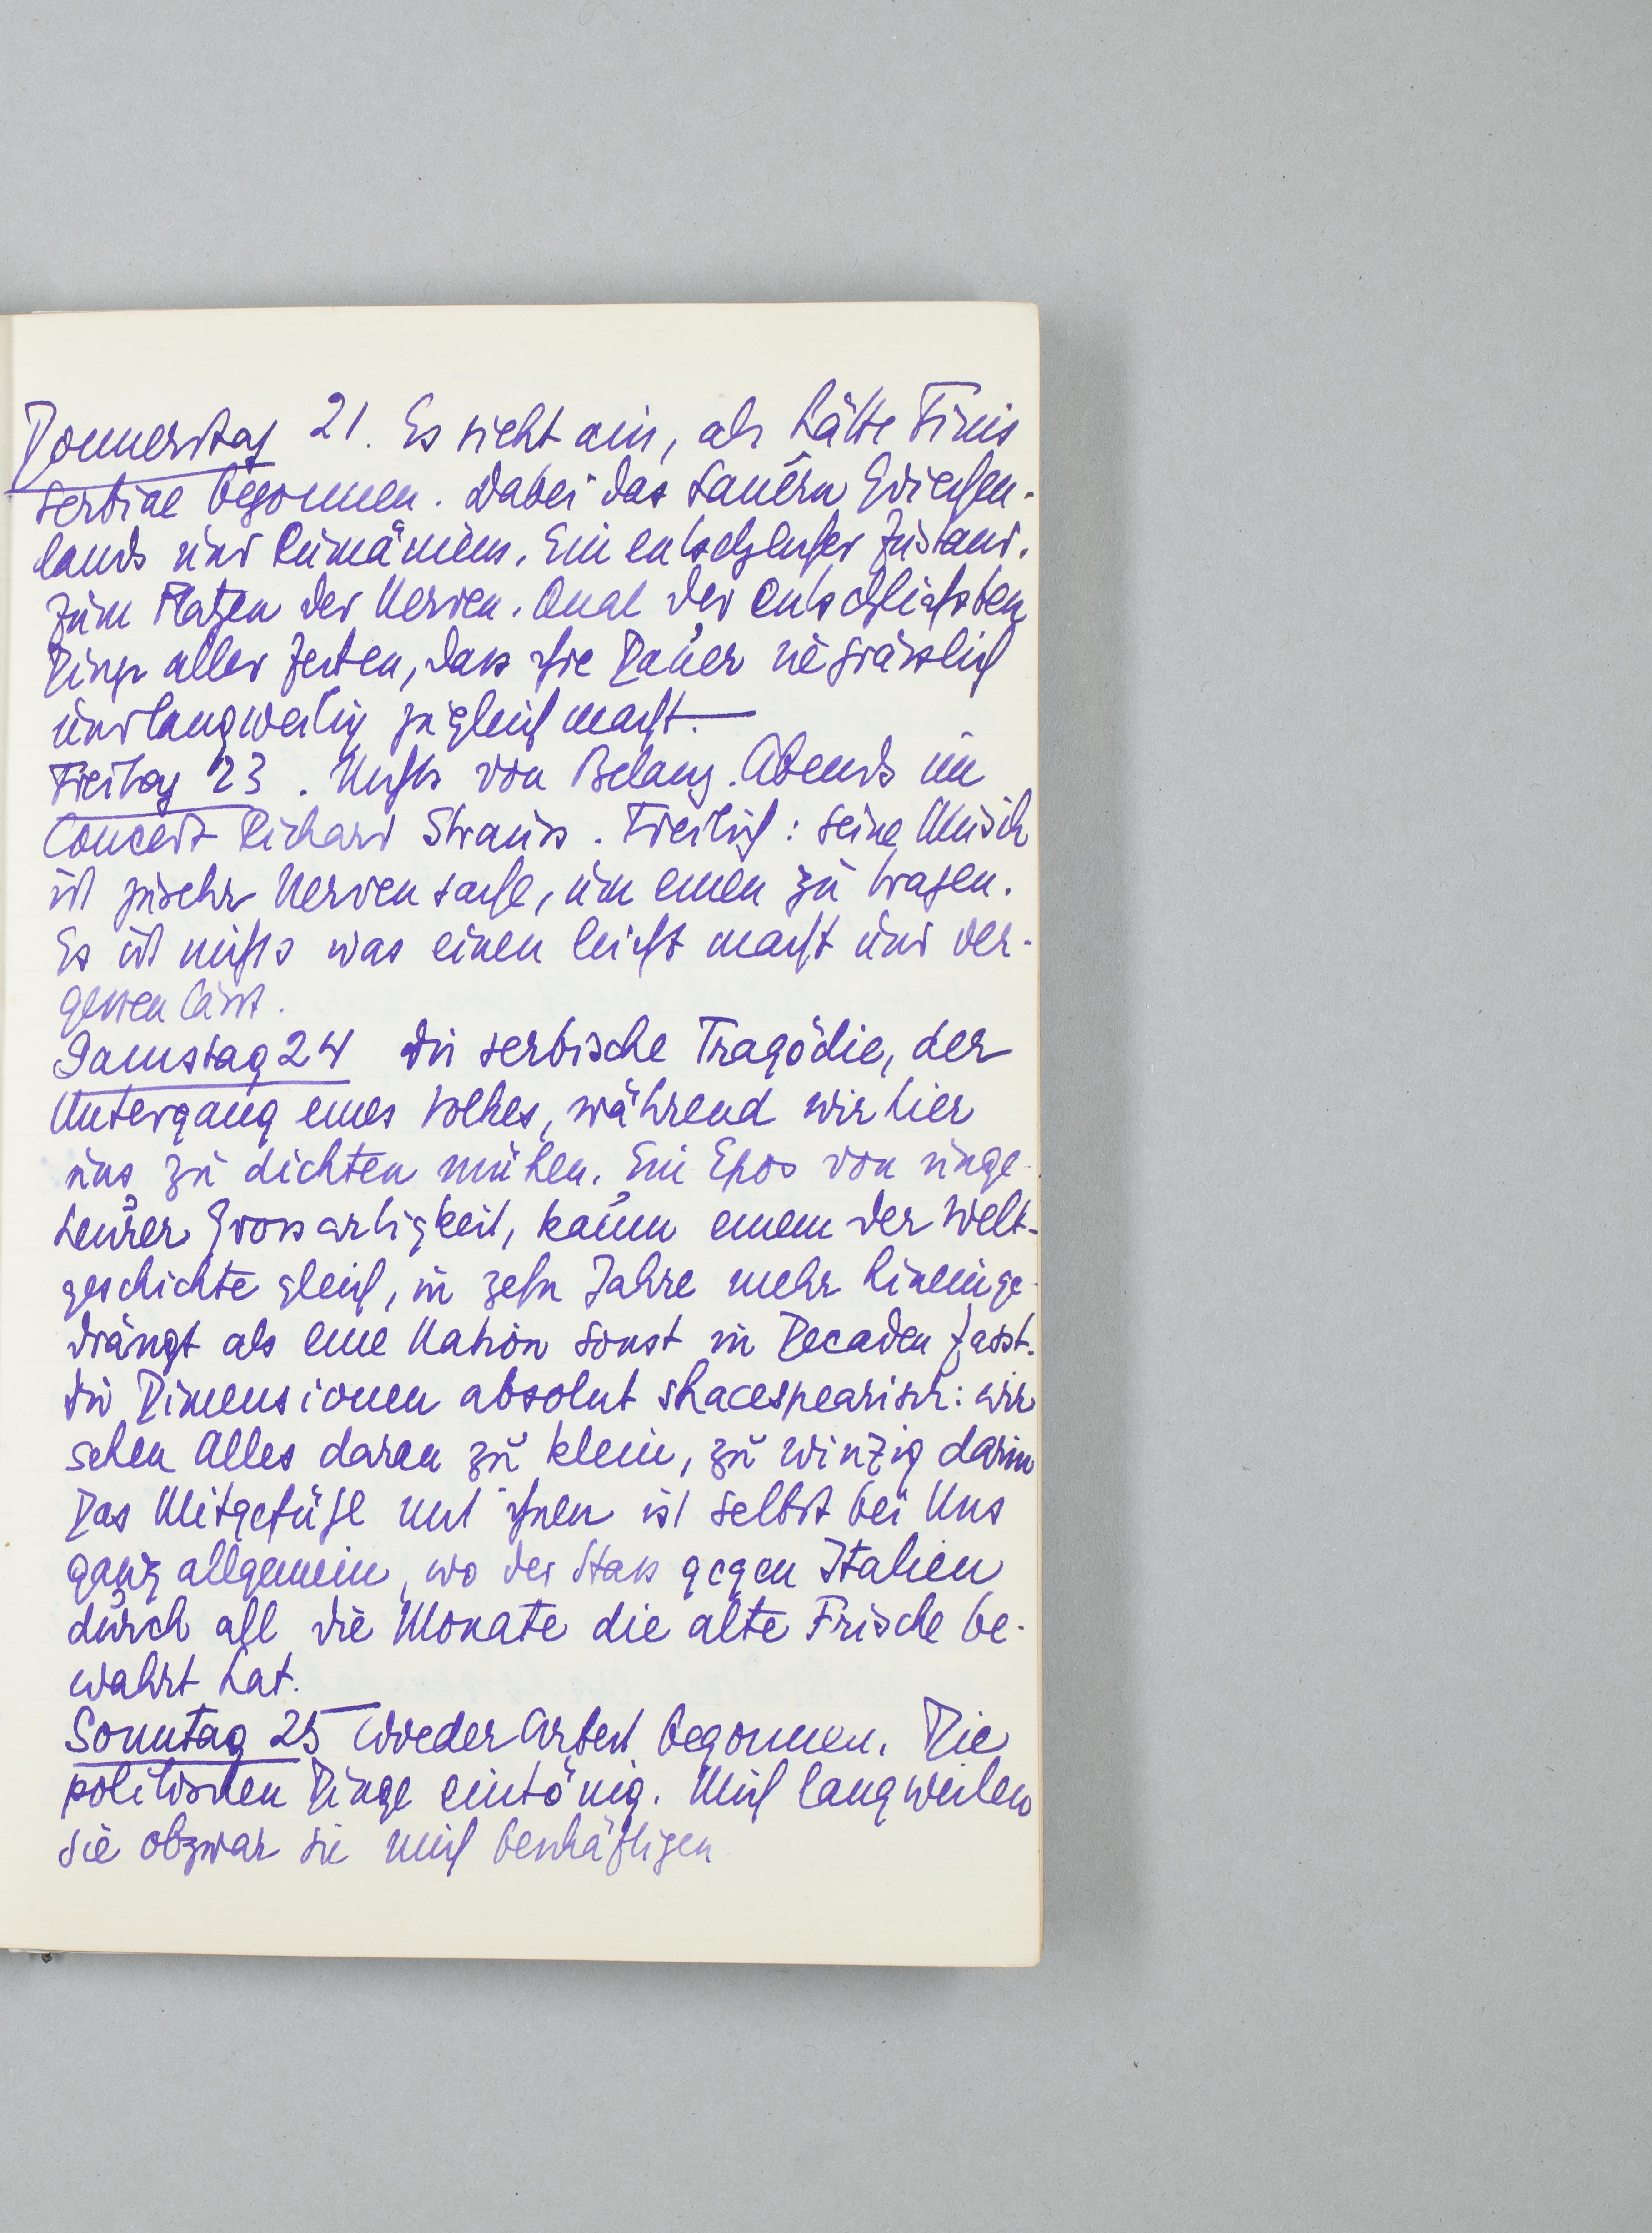 Donnerstag 21. Es sieht aus, als hätte Finis
Serbiae begonnen. Dabei das Lauern Griechen-
lands und Rumäniens. Ein entsetzlicher Zustand.
Zum Platzen der Nerven. Qual der entsetzlichsten
Dinge aller Zeiten, dass ihre Dauer sie grässlich
und langweilig zugleich macht.—
Freitag 23. Nichts von Belang. Abends im
Concert Richard Strauss. Freilich: seine Musik
ist zusehr Nervensache, um einen zu tragen.
Es ist nichts was einen leicht macht und ver-
gessen lässt.
Samstag 24 Die serbische Tragödie, der
Untergang eines Volkes, während wir hier
uns zu dichten mühen. Ein Epos von unge-
heurer Grossartigkeit, kaum einem der Welt-
geschichte gleich, in zehn Jahre mehr hineinge-
drängt als eine Nation sonst in Decaden fasst.
Die Dimensionen absolut shacespearisch: wir
sehen Alles daran zu klein, zu winzig darin
Das Mitgefühl mit ihnen ist selbst bei Uns
ganz allgemein, wo der Hass gegen Italien
durch all die Monate die alte Frische be-
wahrt hat.
Sonntag 25 Wieder Arbeit begonnen. Die
politischen Dinge eintönig. Mich langweilen
sie obzwar sie mich beschäftigen